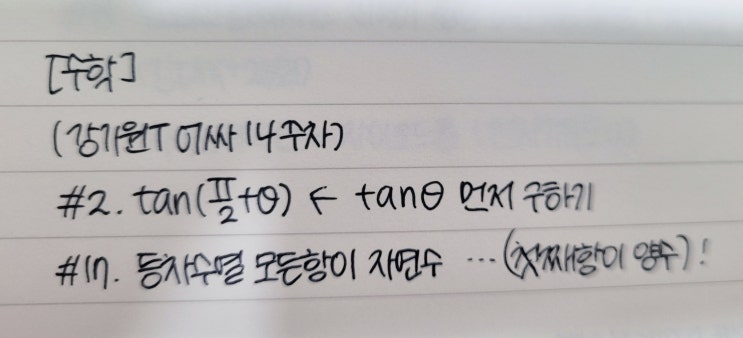 [수학]
(강기원T 어싸 14주차)
#2. tan(π/2+θ) ← tanθ 먼저 구하기
#17. 등차수열 모든항이 자연수 … (첫째항이 양수)!